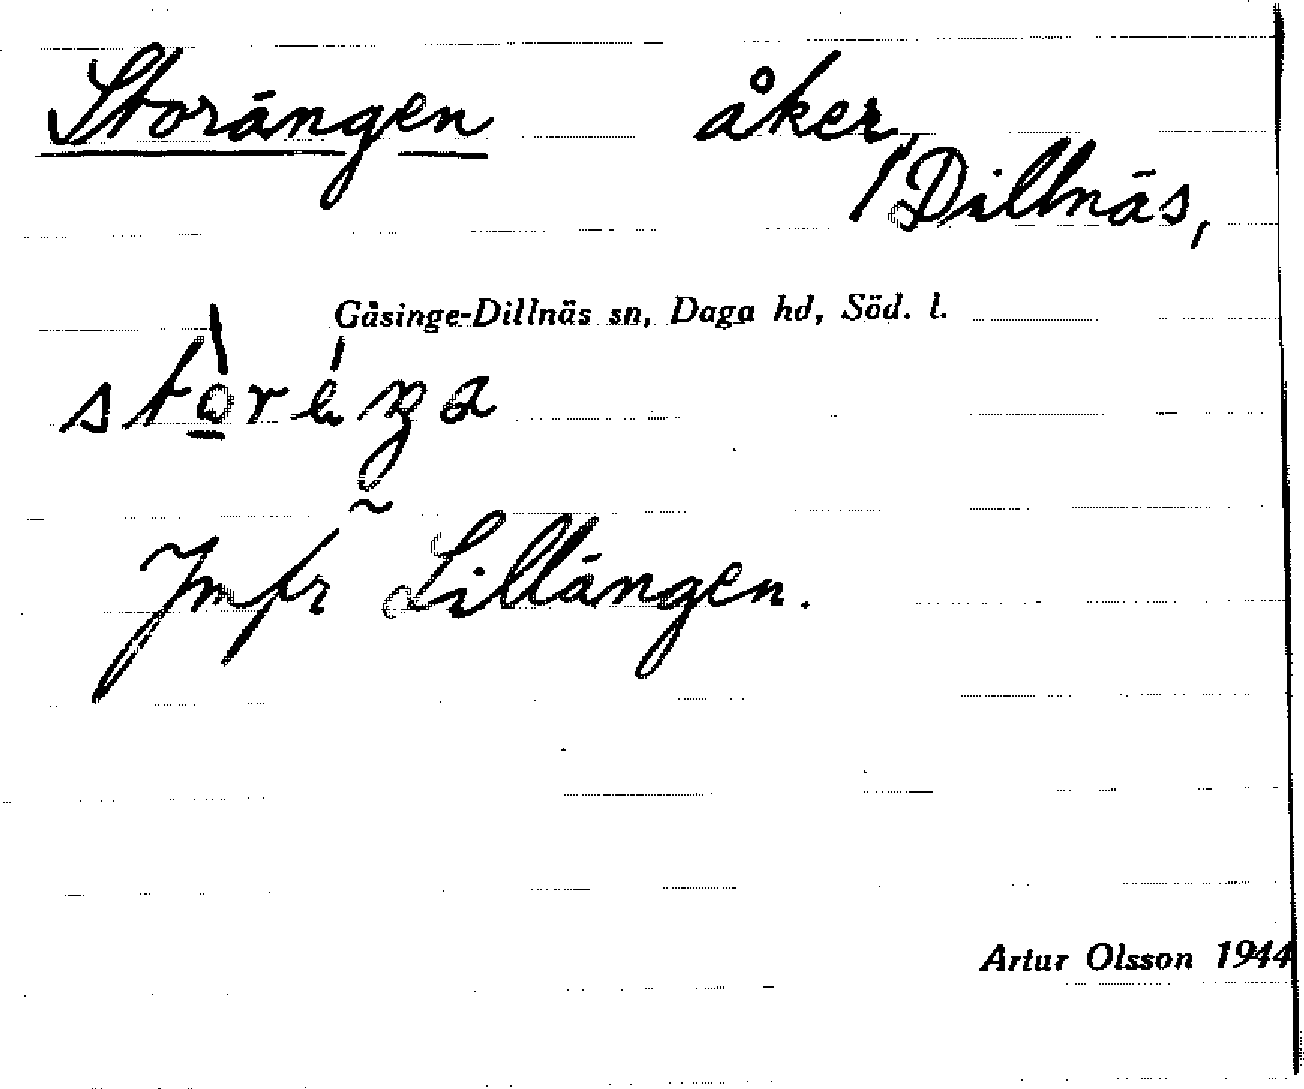 Storängen åker,
Dillnäs,
Gåsinge-Dillnäs sn, Daga hd, Söd. l.
Jmfr Lillängen.
Artur Olsson 1944